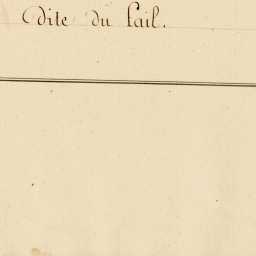 Dite du Fail.